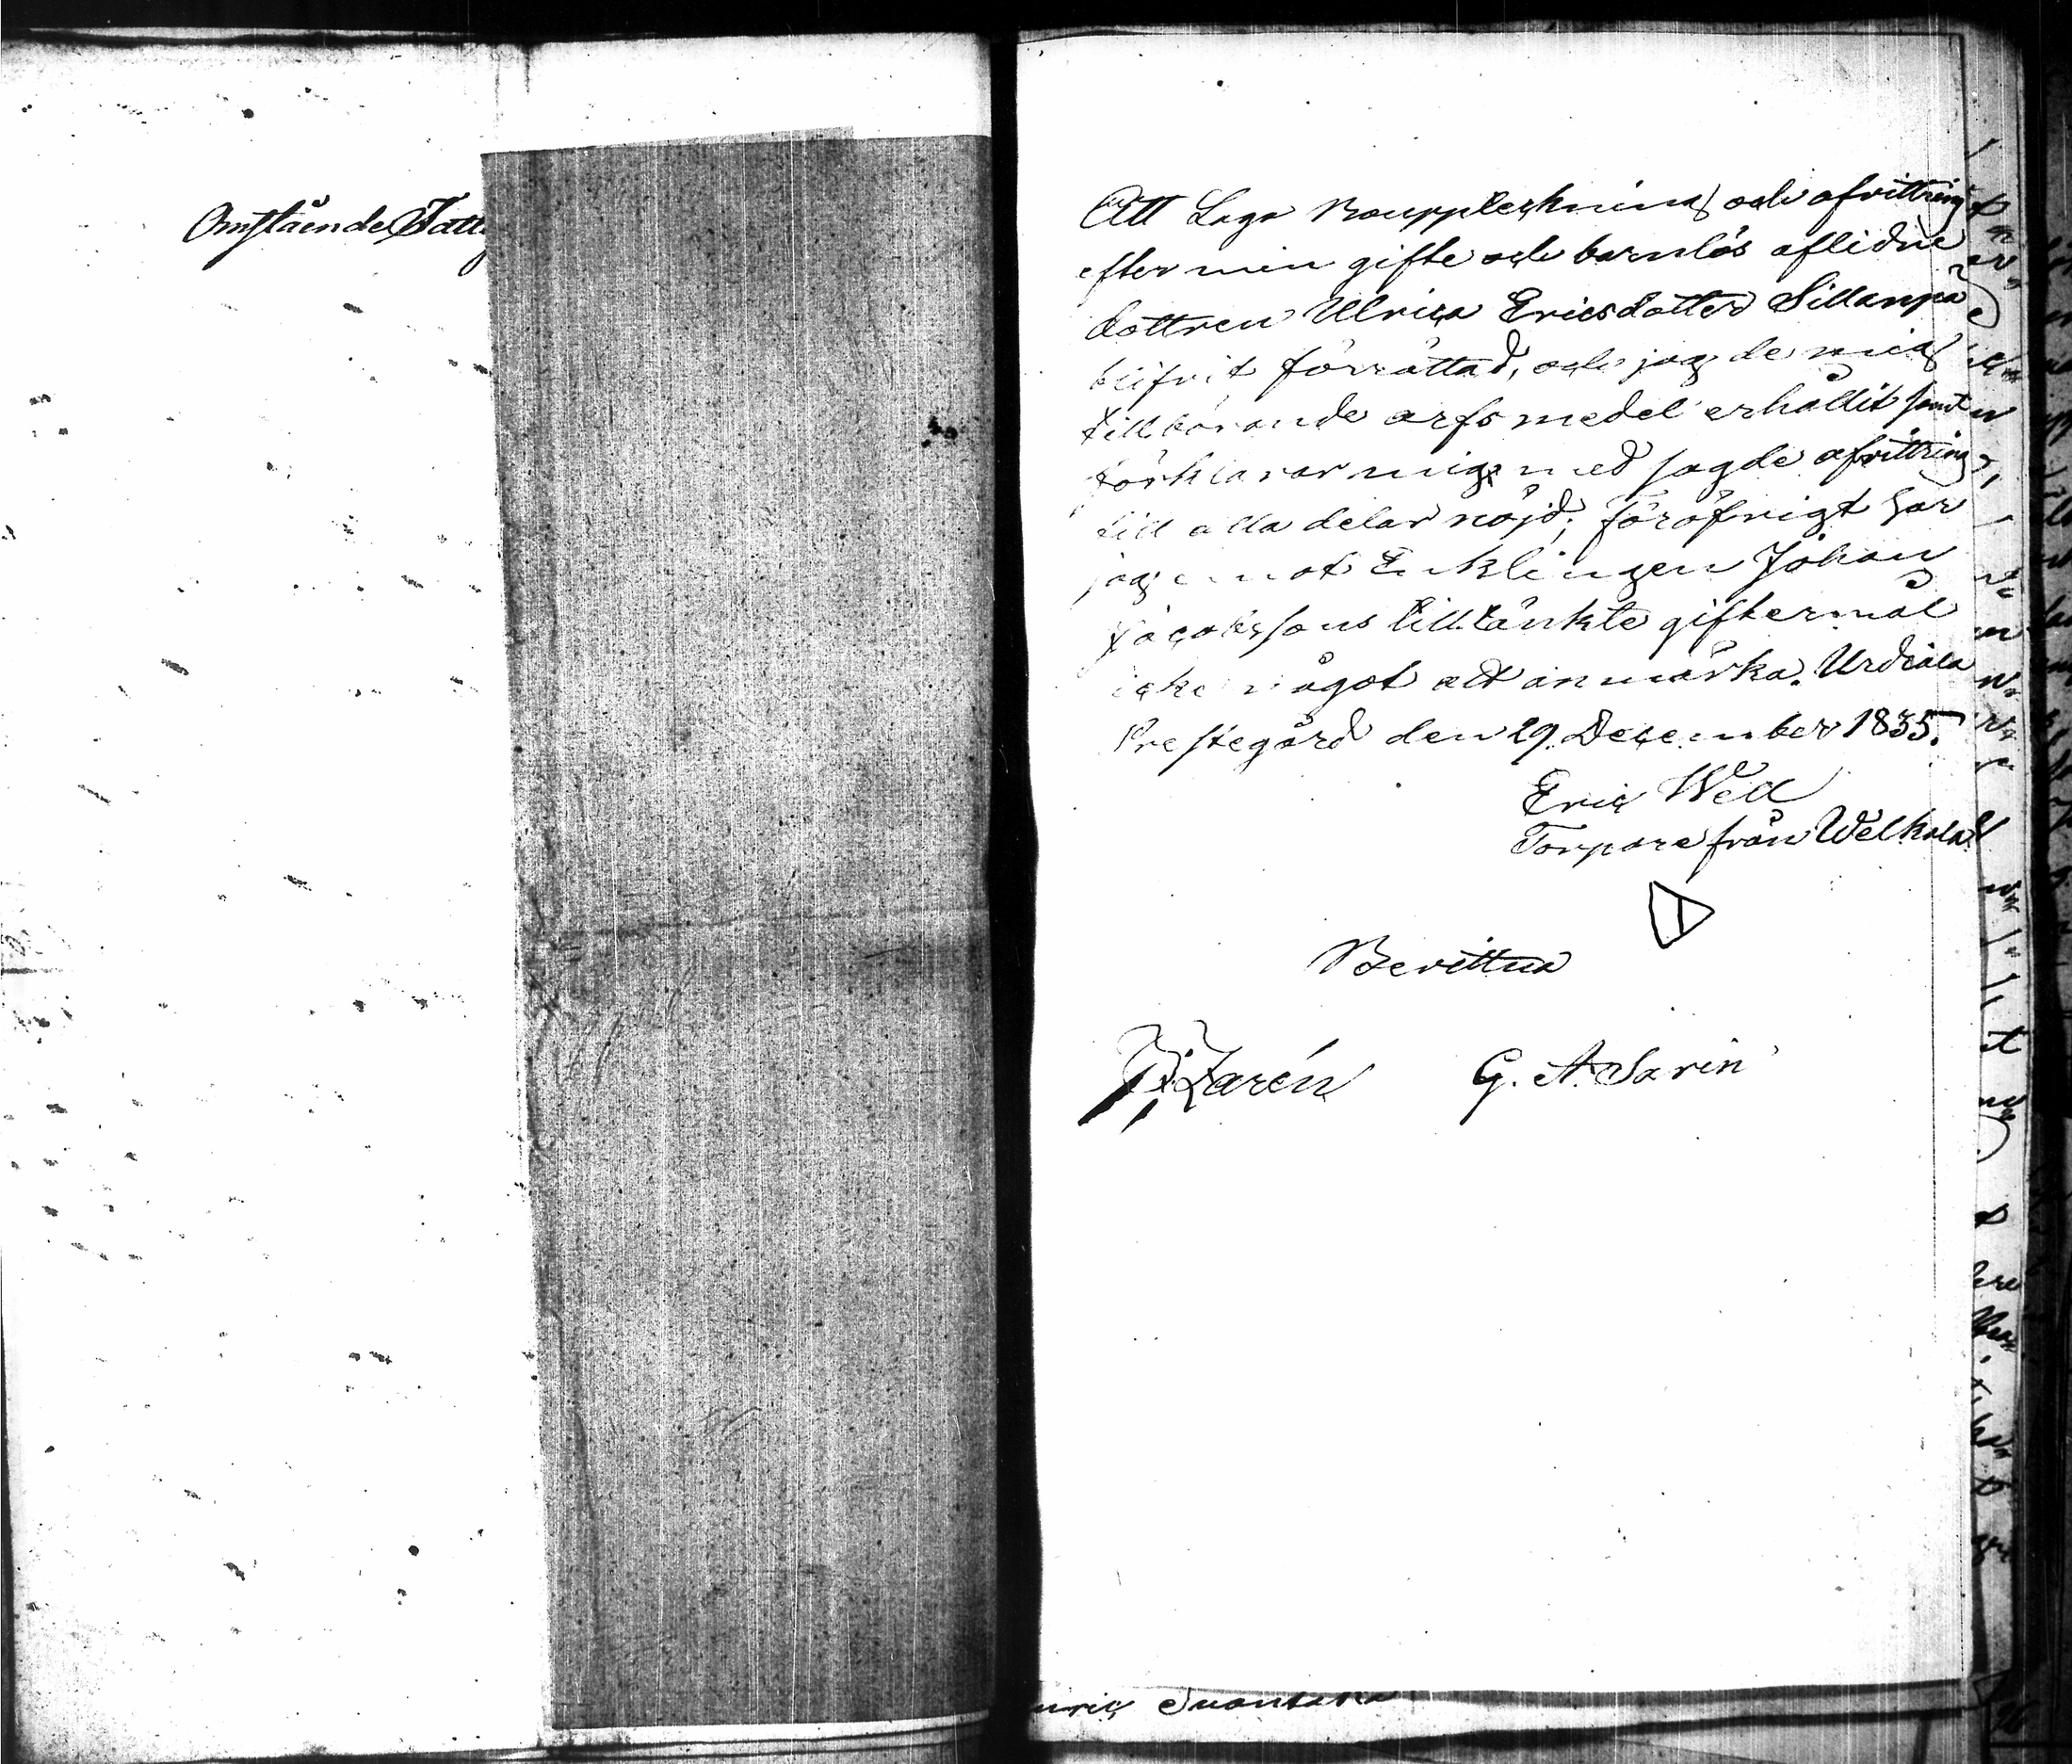 Omstående Fatti
Att Laga Bouppteckning och afvittring
efter min gifte och barnlös aflidne
dottren Ulrica Ericsdotter Sillanpä
blifvit förrättad, och jag de mig
tillkommande arfs medel erhållit samt
förklarar mig med sagde afvittring
till alla delar nöjd; föröfrigt har
jag emot Enklingen Johan
Jacobssons tilltänkte giftermål
icke något att anmärka. Urdiala
Prestegård den 29. December 1835.
Eric Well
Torpare från Welkala
Bevittna
Zarén G. A. Sarin
Suontaka